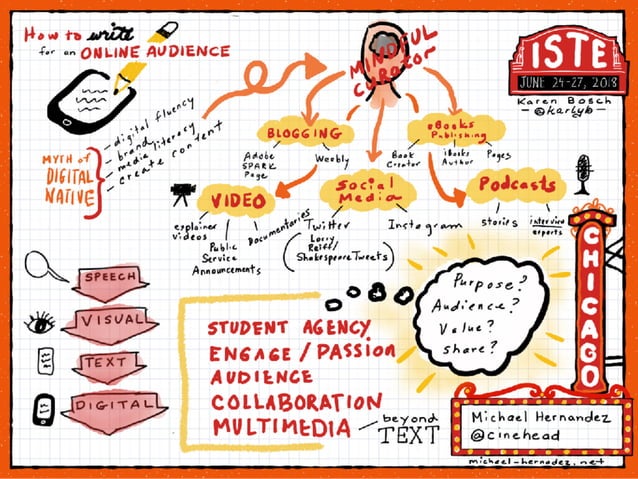 How to write
for an ONLINE AUDIENCE
MINDFUL
Curator
ISTE
JUNE 24-27, 2018
Karen Bosch
- @karlyb -
MYTH of
DIGITAL
NATIVE
- digital fluency
- brand
- media literacy
- create content
BLOGGING
Adobe
SPARK
Page
Weebly
eBooks
Publishing
Book
Creator
iBooks
Author
Pages
VIDEO
explainer
videos
Public
Service
Announcements
Documentaries
Social
Media
Twitter
(Larry
Reiff/
Shakespeare Tweets)
Instagram
Podcasts
stories
interview
experts
CHICAGO
SPEECH
VISUAL
TEXT
DIGITAL
STUDENT AGENCY
ENGAGE / PASSION
AUDIENCE
COLLABORATION
MULTIMEDIA
beyond
TEXT
Purpose?
Audience?
Value?
Share?
Michael Hernandez
@cinehead
michael-hernandez.net